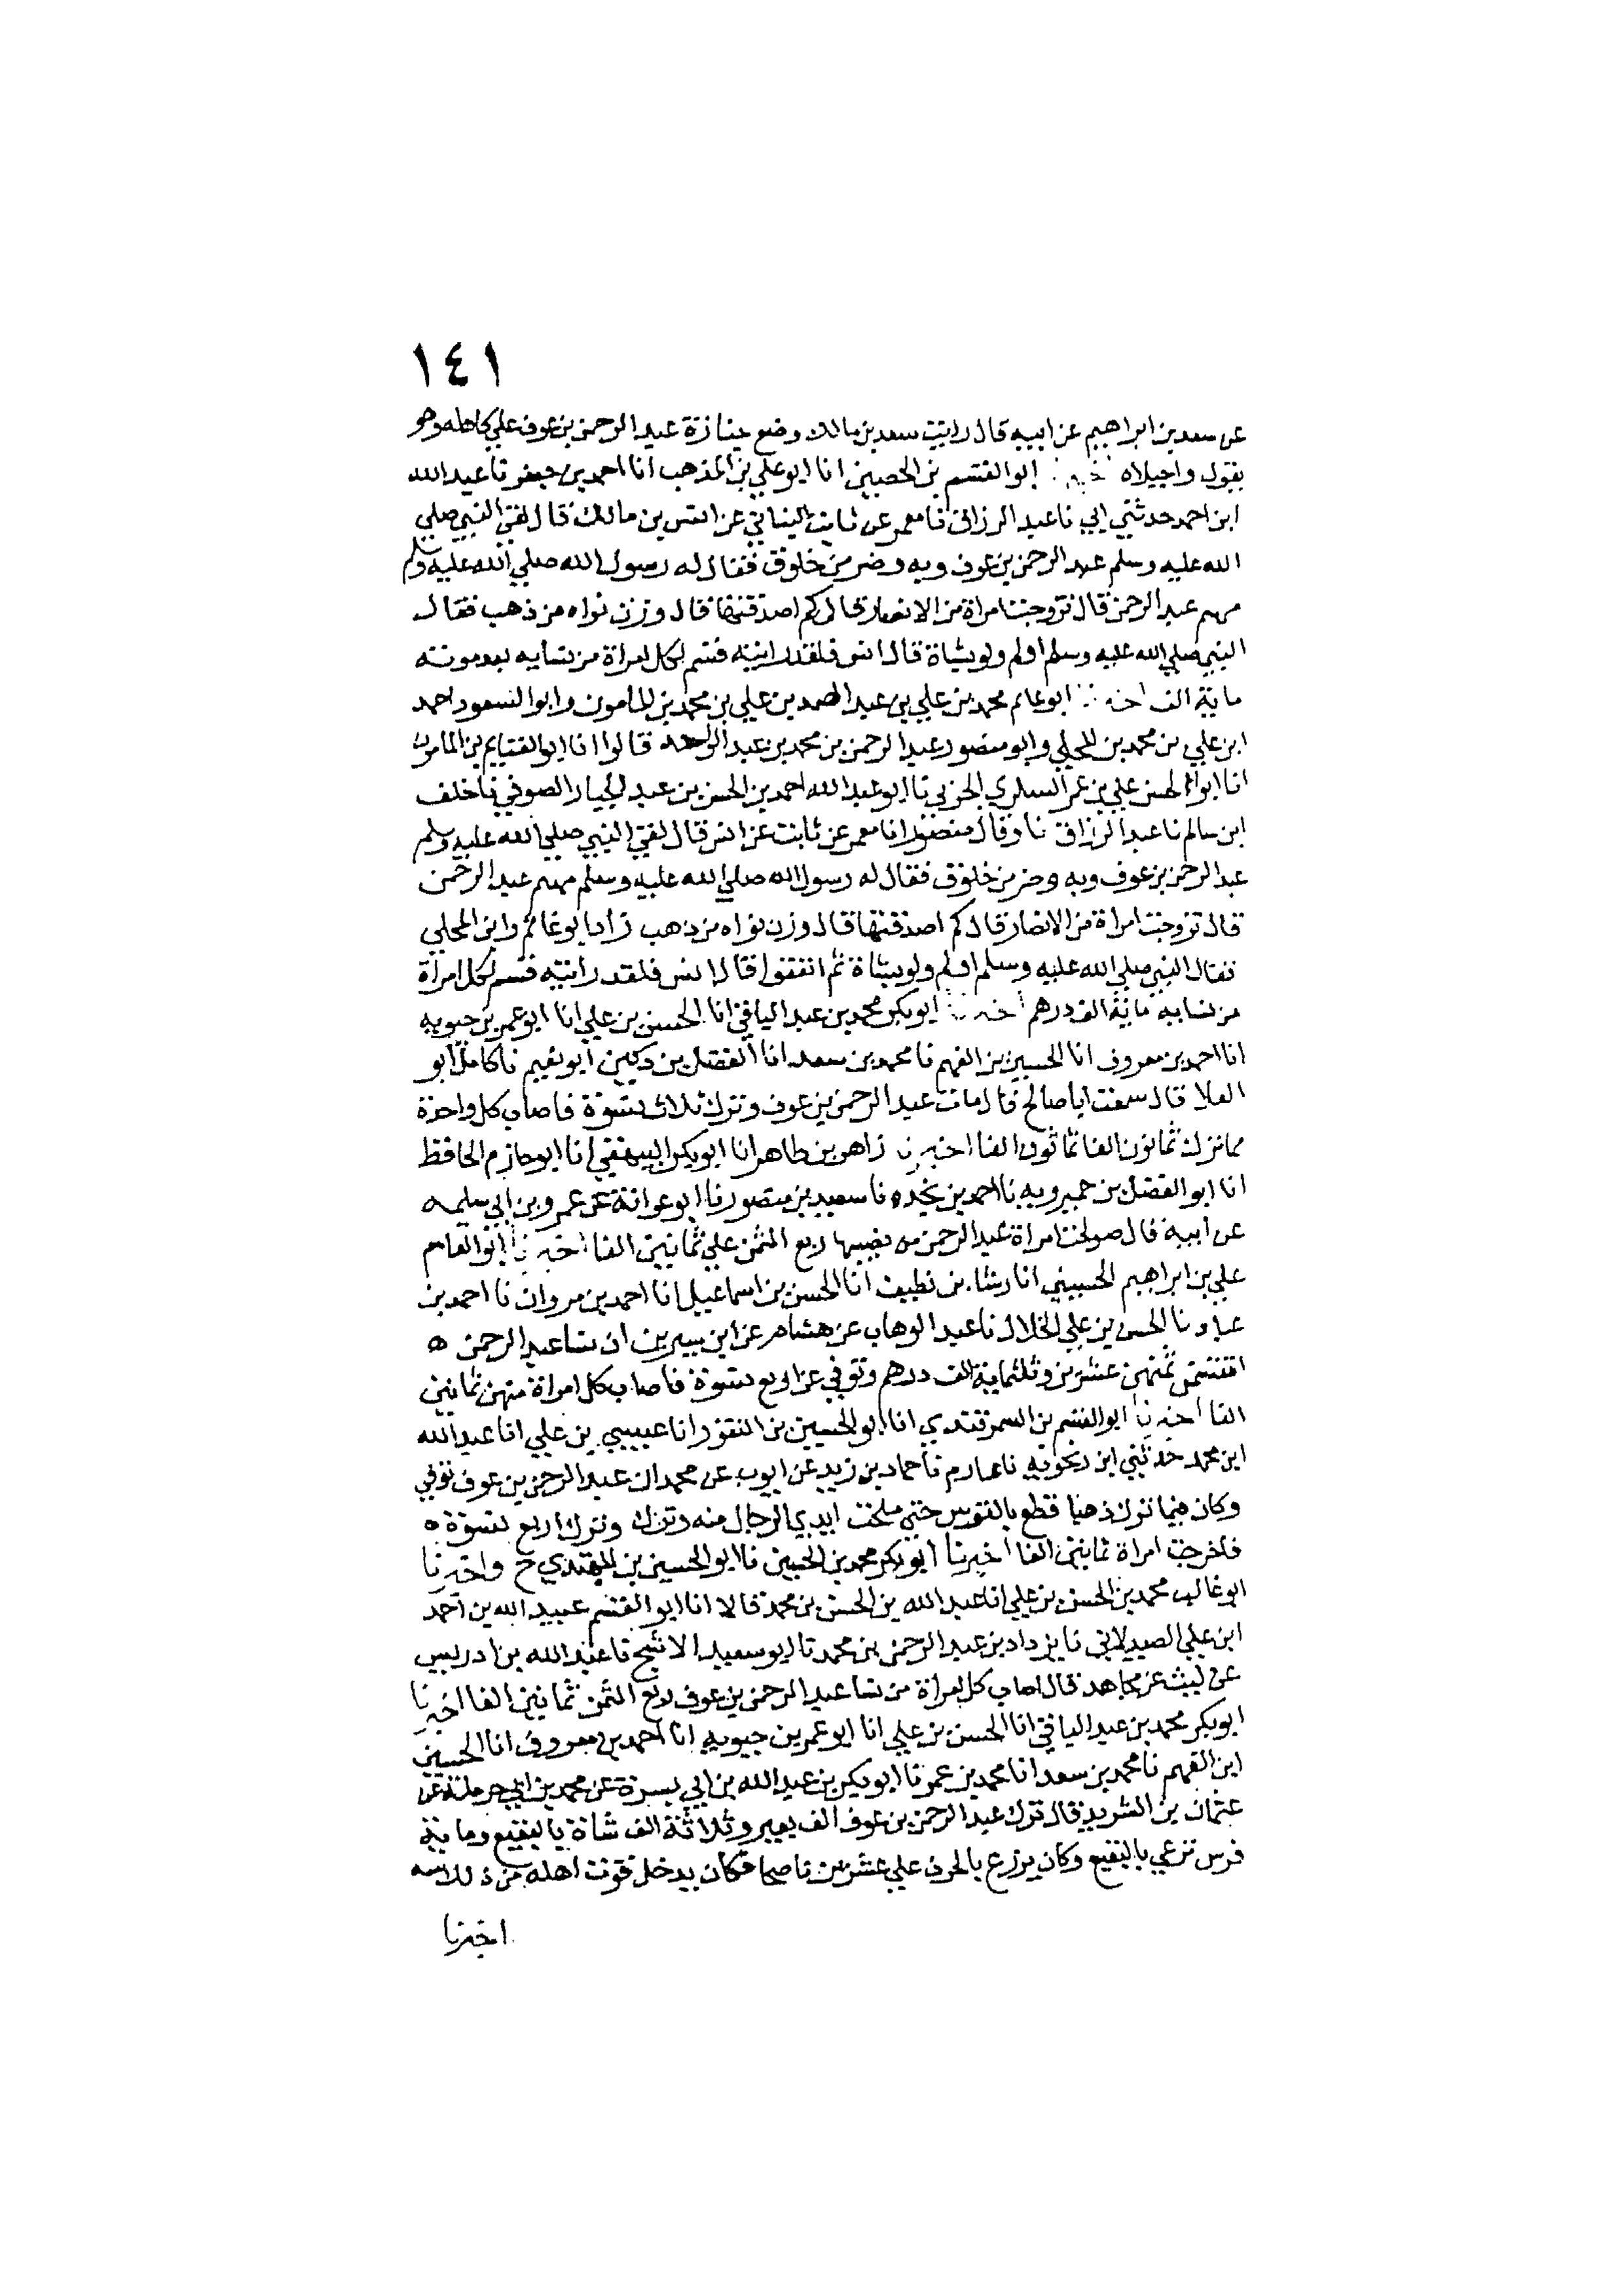 ١٤١
عن سعد بن ابراهيم عن ابيه قال رايت سعد بن مالك وضع جنازة عبد الرحمن بن عوف علي كاهله وهو
يقول واجبلاه ابو القسم بن الحصين انا ابو علي بن المذهب انا احمد بن جعفر نا عبد الله
ابن احمد حدثني ابي نا عبد الرزاق نا معمر عن ثابت البناني عن انس بن مالك قال لقي النبي صلي
الله عليه وسلم عبد الرحمن بن عوف وبه وضر من خلوق فقال له رسول الله صلي الله عليه وسلم
مهيم عبد الرحمن قال تزوجت امراة من الانصار قال كم اصدقتها قال وزن نواه من ذهب فقال
النبي صلي الله عليه وسلم اولم ولو بشاة قال انس فلقد رايته قسم لكل امراة من نسايه بعد موته
ماية الف اخبرنا ابو غانم محمد بن علي بن عبد الصمد بن علي بن محمد بن المامون وابو السعود احمد
ابن علي بن محمد بن المجلي وابو منصور عبد الرحمن بن محمد بن عبد الواحد قالوا انا ابو الغنايم بن المامون
انا ابو الحسن علي بن عمر السكري الحربي نا ابو عبد الله احمد بن الحسن بن عبد الجبار الصوفي نا خلف
ابن سالم نا عبد الرزاق نا وقال منصور انا معمر عن ثابت عن انس قال لقي النبي صلي الله عليه وسلم
عبد الرحمن بن عوف وبه وضر من خلوق فقال له رسول الله صلي الله عليه وسلم مهيم عبد الرحمن
قال تزوجت امراة من الانصار قال كم اصدقتها قال وزن نواه من ذهب زاد ابو غانم وابن المجلي
فقال النبي صلي الله عليه وسلم اولم ولو بشاة ثم اتفقوا قال انس فلقد رايته قسم لكل امراة
من نسايه ماية الف درهم اخبرنا ابو بكر محمد بن عبد الباقي انا الحسن بن علي انا ابو عمر بن حيويه
انا احمد بن معروف انا الحسين بن الفهم نا محمد بن سعد انا الفضل بن دكين ابو نعيم نا كامل ابو
العلا قال سمعت ابا صالح قال مات عبد الرحمن بن عوف وترك ثلاث نسوة فاصاب كل واحدة
مما ترك ثمانون الفا ثمانون الفا اخبرنا زاهر بن طاهر انا ابو بكر البيهقي انا ابو حازم الحافظ
انا ابو الفضل بن خميرويه نا احمد بن نجده نا سعيد بن منصور نا ابو عوانة عن عمرو بن ابي سلمه
عن ابيه قال صولحت امراة عبد الرحمن من نصيبها ربع الثمن علي ثمانين الفا اخبرنا ابو القاسم
علي بن ابراهيم الحسيني انا رشا بن نظيف انا الحسن بن اسماعيل انا احمد بن مروان نا احمد بن
عباد نا الحسن بن علي الخلال نا عبد الوهاب عن هشام عن ابن سيرين ان نسا عبد الرحمن ه
اقتسمن ثمنهن عشرين وثلثماية الف درهم وتوفي عن اربع نسوة فاصاب كل امراة منهن ثمانين
الفا اخبرنا ابو القسم بن السمرقندي انا ابو الحسين بن النقور انا عيسي بن علي انا عبد الله
ابن محمد حدثني ابن زنجويه نا عارم نا حماد بن زيد عن ايوب عن محمد ان عبد الرحمن بن عوف توفي
وكان فيما ترك ذهبا قطع بالفوس حتي مجلت ايدي الرجال منه وترك وترك اربع نسوة ه
فاخرجت امراة ثمانين الفا اخبرنا ابو بكر محمد بن الحسين نا ابو الحسين بن المهتدي ح واخبرنا
ابو غالب محمد بن الحسن بن علي انا عبد الله بن الحسن بن محمد قالا انا ابو القسم عبيد الله بن احمد
ابن علي الصيدلاني نا يزداد بن عبد الرحمن بن محمد نا ابو سعيد الاشج نا عبد الله بن ادريس
عن ليث عن مجاهد قال اصاب كل امراة من نسا عبد الرحمن بن عوف ربع الثمن ثمانين الفا اخبرنا
ابو بكر محمد بن عبد الباقي انا الحسن بن علي انا ابو عمر بن حيويه انا احمد بن معروف انا الحسين
ابن الفهم نا محمد بن سعد انا محمد بن عمر نا ابو بكر بن عبد الله بن ابي سبرة عن محمد بن ابي حرملة عن
عثمان بن الشريد قال ترك عبد الرحمن بن عوف الف بعير وثلاثة الف شاة بالبقيع وماية
فرس ترعي بالبقيع وكان يزرع بالجرف علي عشرين ناضحا فكان يدخل قوت اهله من ذلك سنه
اخبرنا